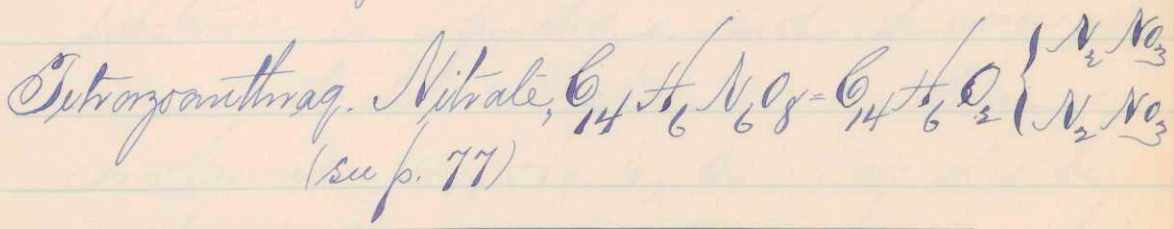 Tetrazoanthraq. Nitrate, C₁₄H₆N₆O₈ = C₁₄H₆O₂ { N₂NO₃ N₂NO₃
(see p. 77)